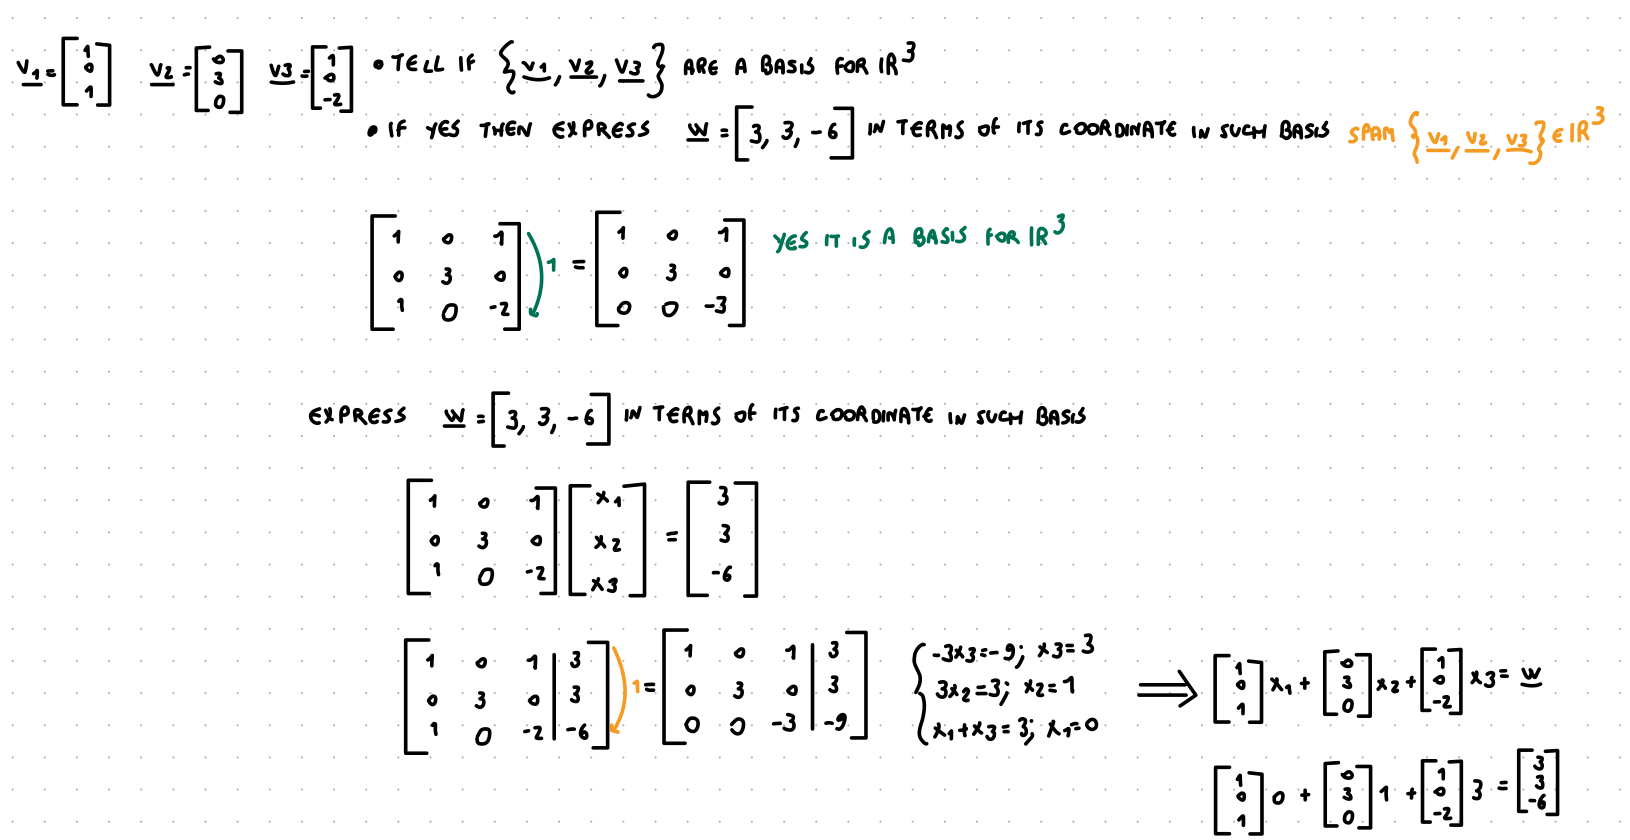 v1 = [1 0 1] v2 = [0 3 0] v3 = [1 0 -2] • TELL IF {v1, v2, v3} ARE A BASIS FOR IR^3
• IF YES THEN EXPRESS w = [3, 3, -6] IN TERMS OF ITS COORDINATE IN SUCH BASIS SPAM {v1, v2, v3} ∈ IR^3
[1 0 1 ; 0 3 0 ; 1 0 -2] 1 = [1 0 1 ; 0 3 0 ; 0 0 -3] YES IT IS A BASIS FOR IR^3
EXPRESS w = [3, 3, -6] IN TERMS OF ITS COORDINATE IN SUCH BASIS
[1 0 1 ; 0 3 0 ; 1 0 -2] [x1 ; x2 ; x3] = [3 ; 3 ; -6]
[1 0 1 | 3 ; 0 3 0 | 3 ; 1 0 -2 | -6] 1 = [1 0 1 | 3 ; 0 3 0 | 3 ; 0 0 -3 | -9]
{ -3x3 = -9; x3 = 3
3x2 = 3; x2 = 1
x1 + x3 = 3; x1 = 0
⟹ [1 0 1] x1 + [0 3 0] x2 + [1 0 -2] x3 = w
[1 0 1] 0 + [0 3 0] 1 + [1 0 -2] 3 = [3 3 -6]